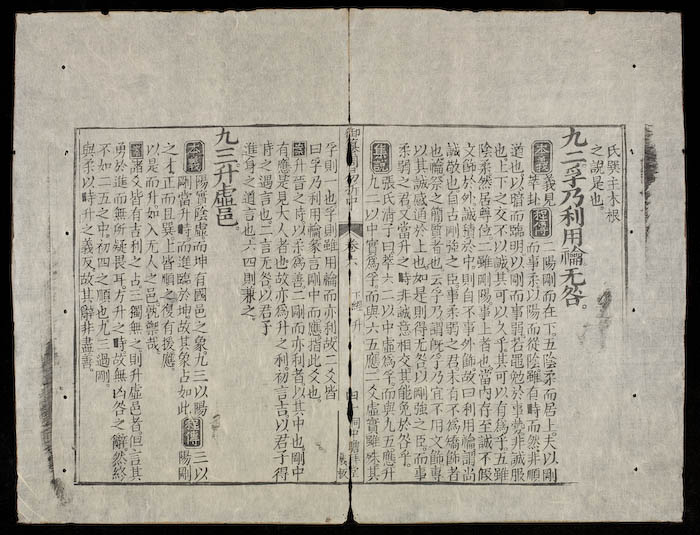 氏巽主木根
之說是也。
九二孚乃利用禴无咎。
本義 義見萃卦 程傳 二陽剛而在下五陰柔而居上夫以剛
而事柔以陽而從陰雖有時而然非順
道也以暗而臨明以剛而事弱若黽勉於事勢非誠服
也上下之交不以誠其可以久乎其可以有為乎五雖
陰柔然居尊位二雖剛陽事上者也當內存至誠不假
文飾於外誠積於中則自不事外飾故曰利用禴謂尚
誠敬也自古剛強之臣事柔弱之君未有不為矯飾者
也禴祭之簡質者也云孚乃謂旣孚乃宜不用文飾專
以其誠感通於上也如是則得无咎以剛強之臣而事
柔弱之君又當升之時非誠意相交其能免於咎乎。
集說 張氏清子曰萃六二以中虛為孚而與九五應升
九二以中實為孚而與六五應二爻虛實雖殊其
御纂周易折中 卷六 下經 升
藏板
孚則一也孚則雖用禴而亦利故二爻皆
曰孚乃利用禴彖言剛中而應指此爻也。
案 升晉之時以柔為善二剛而亦利者以其中也剛中
有應是見大人者也故亦為升之利。初言吉以君子得
時之遇言也二言无咎以君子
進身之道言也六四則兼之。
九三升虛邑。
本義 陽實陰虛而坤有國邑之象九三以陽
剛當升時而進臨於坤故其象占如此 程傳 三以陽剛
之才正而且巽上皆順之復有援應
以是而升如入无人之邑孰禦哉
案 諸爻皆有吉利之占三獨無之則升虛邑者但言其
勇於進而無所疑畏耳方升之時故無凶咎之辭然終
不如二五之中初四之順也九三過剛。
與柔以時升之義反故其辭非盡善。